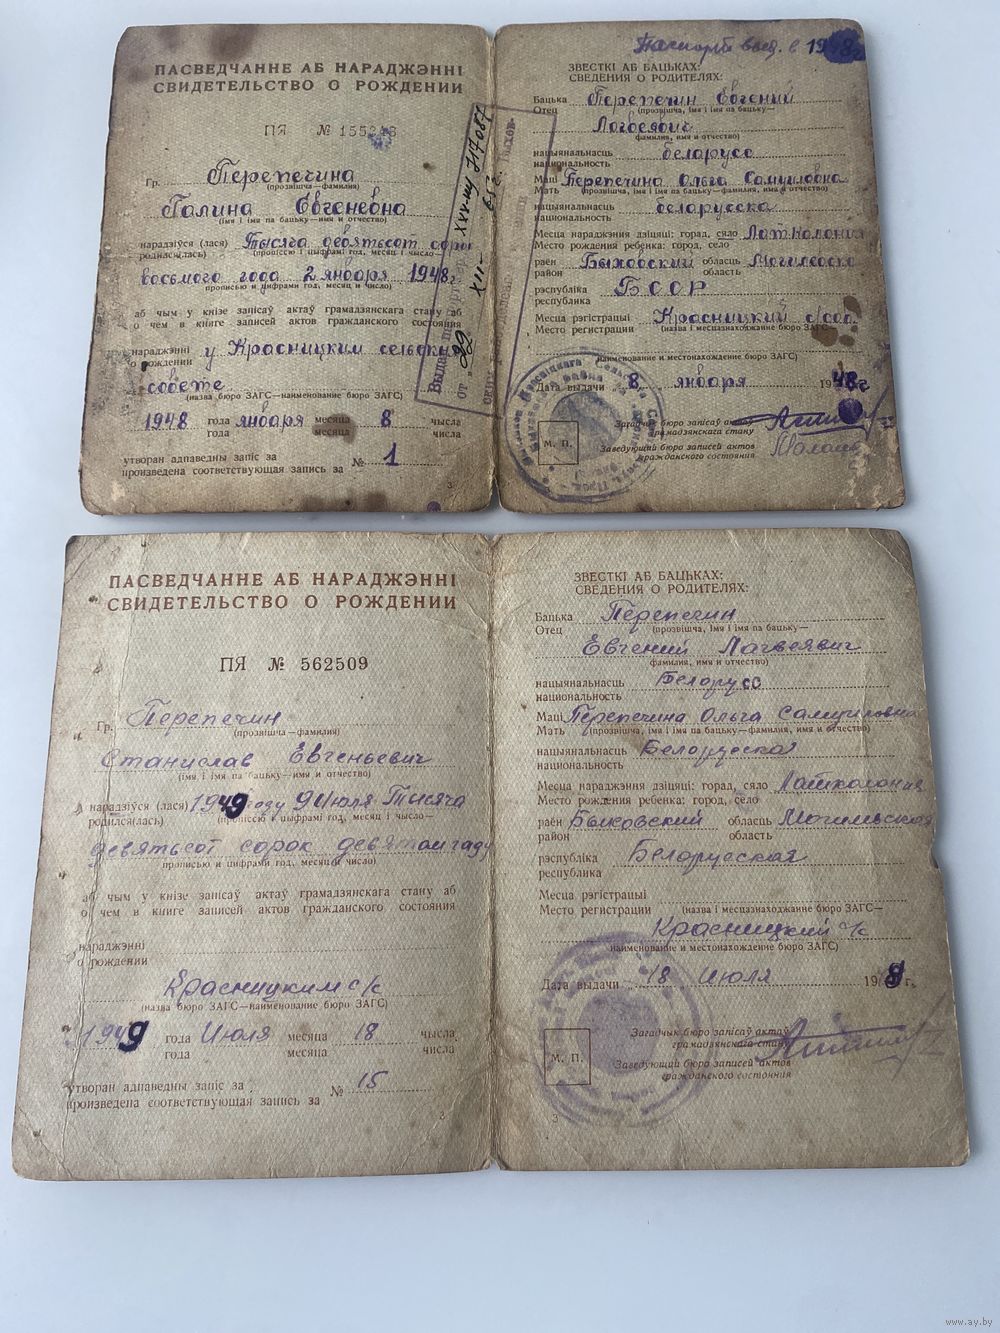 ПАСВЕДЧАННЕ АБ НАРАДЖЭННІ
СВИДЕТЕЛЬСТВО О РОЖДЕНИИ
ПЯ № 155
Гр. Перепечина
(прозвішча—фамилия)
Галина Евгеневна
(імя і імя па бацьку—имя и отчество)
нарадзіўся (лася) Тысяча девятьсот
родился(лась) (прописью и цифрами год, месяц и число—
восьмого года 2 января 1948 г
прописью и цифрами год, месяц и число)
аб чым у кнізе запісаў актаў грамадзянскага стану аб
о чем в книге записей актов гражданского состояния
нараджэнні у Красницким сельском
о рождении
совете
(назва бюро ЗАГС—наименование бюро ЗАГС)
1948 года января месяца 8 чысла
года месяца числа
утворан адпаведны запіс за № 1
произведена соответствующая запись за
3
Выдан
от "22" XII—
XXV-му 717087
Паспорт выд. в 1948
ЗВЕСТКІ АБ БАЦЬКАХ:
СВЕДЕНИЯ О РОДИТЕЛЯХ:
Бацька Перепечин Евгений
Отец (прозвішча, імя і імя па бацьку—
Логвеявич
фамилия, имя и отчество)
нацыянальнасць белорусс
национальность
Маці Перепечина Ольга Самуиловна
Мать (прозвішча, імя і імя па бацьку—фамилия, имя и отчество)
нацыянальнасць белорусска
национальность
Месца нараджэння дзіцяці: горад, сяло Латколония
Место рождения ребенка: город, село
раён Быховский обласць Могилевско
район область
рэспубліка БССР
республика
Месца рэгістрацыі Красницкий с/сов.
Место регистрации (назва і месцазнаходжанне бюро ЗАГС—
наименование и местонахождение бюро ЗАГС)
Дата выдачи „8„ января 1948 г
Загадчык бюро запісаў актаў
грамадзянскага стану
М. П.
Заведующий бюро записей актов
гражданского состояния
ПАСВЕДЧАННЕ АБ НАРАДЖЭННІ
СВИДЕТЕЛЬСТВО О РОЖДЕНИИ
ПЯ № 562509
Гр. Перепечин
(прозвішча—фамилия)
Станислав Евгеньевич
(імя і імя па бацьку—имя и отчество)
нарадзіўся (лася) 1949 году 9 Июля Тысяча
родился(лась) (прописью и цифрами год, месяц и число—
девятьсот сорок девятом гаду
прописью и цифрами год, месяц и число)
аб чым у кнізе запісаў актаў грамадзянскага стану аб
о чем в книге записей актов гражданского состояния
нараджэнні
о рождении
Красницким с/с
(назва бюро ЗАГС—наименование бюро ЗАГС)
1949 года Июля месяца 18 чысла
года месяца числа
утворан адпаведны запіс за № 15
произведена соответствующая запись за
3
ЗВЕСТКІ АБ БАЦЬКАХ:
СВЕДЕНИЯ О РОДИТЕЛЯХ:
Бацька Перепечин
Отец (прозвішча, імя і імя па бацьку—
Евгений Логвеявич
фамилия, имя и отчество)
нацыянальнасць Белорусс
национальность
Маці Перепечина Ольга Самуиловна
Мать (прозвішча, імя і імя па бацьку—фамилия, имя и отчество)
нацыянальнасць Белорусская
национальность
Месца нараджэння дзіцяці: горад, сяло Латколония
Место рождения ребенка: город, село
раён Быковский обласць Могильская
район область
рэспубліка Белорусская
республика
Месца рэгістрацыі
Место регистрации (назва і месцазнаходжанне бюро ЗАГС—
Красницкий с/с
наименование и местонахождение бюро ЗАГС)
Дата выдачи „18„ Июля г.
Загадчык бюро запісаў актаў
грамадзянскага стану
М. П.
Заведующий бюро записей актов
гражданского состояния
3
www.ay.by